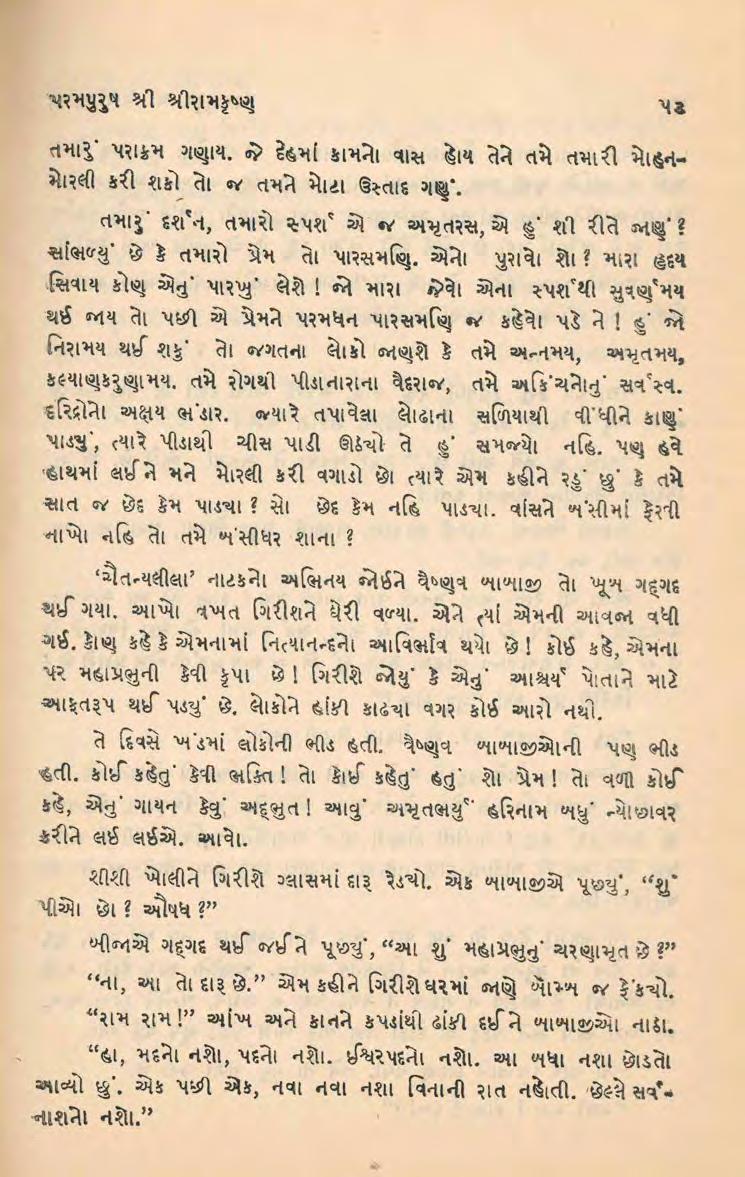 પરમપુરુષ શ્રી શ્રીરામકૃષ્ણ ૫૩
તમારું પરાક્રમ ગણાય. જે દેહમાં કામનો વાસ હોય તેને તમે તમારી મોહન-
મોરલી કરી શકો તો જ તમને મોટા ઉસ્તાદ ગણું.
તમારું દર્શન, તમારો સ્પર્શ એ જ અમૃતરસ, એ હું શી રીતે જાણું ?
સાંભળ્યું છે કે તમારો પ્રેમ તો પારસમણિ. એનો પુરાવો શો ? મારા હૃદય
સિવાય કોણ એનું પારખું લેશે ! જો મારા જેવો એના સ્પર્શથી સુવર્ણમય
થઈ જાય તો પછી એ પ્રેમને પરમધન પારસમણિ જ કહેવો પડે ને ! હું જો
નિરામય થઈ શકું તો જગતના લોકો જાણશે કે તમે અન્નમય, અમૃતમય,
કલ્યાણકરુણામય. તમે રોગથી પીડાનારાના વૈદરાજ, તમે અકિંચનોનું સર્વસ્વ.
દરિદ્રોનો અક્ષય ભંડાર. જ્યારે તપાવેલા લોઢાના સળિયાથી વીંધીને કાણું
પાડ્યું, ત્યારે પીડાથી ચીસ પાડી ઊઠ્યો તે હું સમજ્યો નહિ. પણ હવે
હાથમાં લઈને મને મોરલી કરી વગાડો છો ત્યારે એમ કહીને રડું છું કે તમે
સાત જ છેદ કેમ પાડ્યા ? સો છેદ કેમ નહિ પાડ્યા. વાંસને બંસીમાં ફેરવી
નાખો નહિ તો તમે બંસીધર શાના ?
‘ચૈતન્યલીલા’ નાટકનો અભિનય જોઈને વૈષ્ણવ બાબાજી તો ખૂબ ગદ્ગદ
થઈ ગયા. આખો વખત ગિરીશને ઘેરી વળ્યા. એને ત્યાં એમની આવજા વધી
ગઈ. કોણ કહે કે એમનામાં નિત્યાનન્દનો આવિર્ભાવ થયો છે ! કોઈ કહે, એમના
પર મહાપ્રભુની કેવી કૃપા છે ! ગિરીશે જોયું કે એનું આશ્ચર્ય પોતાને માટે
આફતરૂપ થઈ પડ્યું છે. લોકોને હાંકી કાઢ્યા વગર કોઈ આરો નથી.
તે દિવસે ખંડમાં લોકોની ભીડ હતી. વૈષ્ણવ બાબાજીઓની પણ ભીડ
હતી. કોઈ કહેતું કેવી ભક્તિ ! તો કોઈ કહેતું હતું શો પ્રેમ ! તો વળી કોઈ
કહે, એનું ગાયન કેવું અદ્ભુત ! આવું અમૃતભર્યું હરિનામ બધું ન્યોછાવર
કરીને લઈ લઈએ. આવો.
શીશી ખોલીને ગિરીશે ગ્લાસમાં દારૂ રેડ્યો. એક બાબાજીએ પૂછ્યું, “શું
પીઓ છો ? ઔષધ ?”
બીજાએ ગદ્ગદ થઈ જઈને પૂછ્યું, “આ શું મહાપ્રભુનું ચરણામૃત છે ?”
“ના, આ તો દારૂ છે.” એમ કહીને ગિરીશે ઘરમાં જાણે બૉમ્બ જ ફેંક્યો.
“રામ રામ !” આંખ અને કાનને કપડાંથી ઢાંકી દઈને બાબાજીઓ નાઠા.
“હા, મદનો નશો, પદનો નશો. ઈશ્વરપદનો નશો. આ બધા નશા છોડતો
આવ્યો છું. એક પછી એક, નવા નવા નશા વિનાની રાત નહોતી. છેલ્લે સર્વ-
નાશનો નશો.”